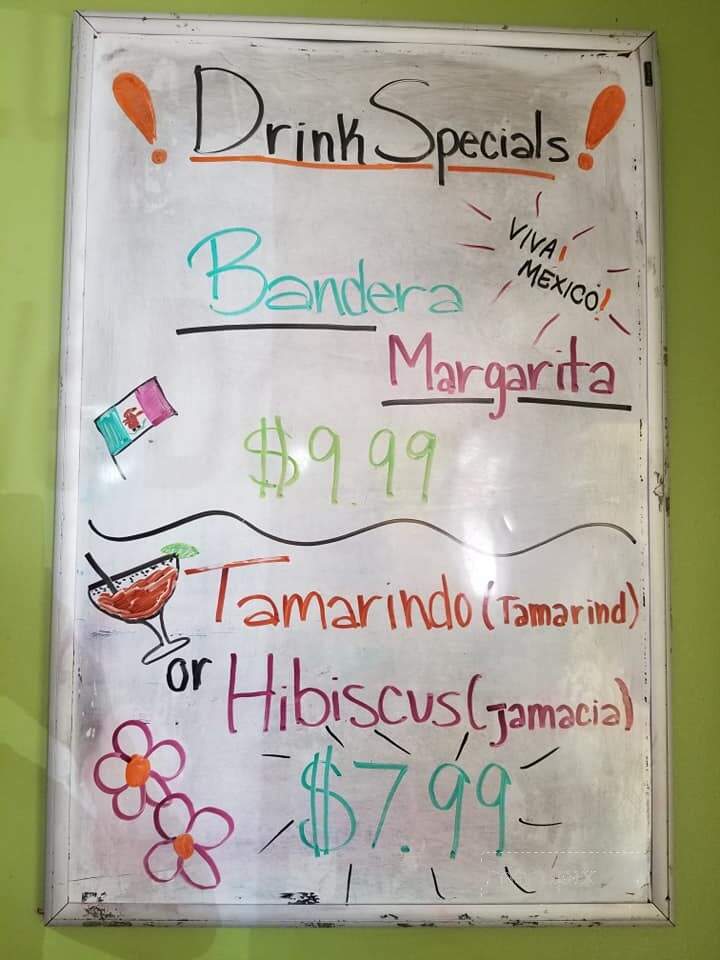 ! Drink Specials !
VIVA!
MEXICO!
Bandera
Margarita
$9.99
Tamarindo (Tamarind)
or Hibiscus (jamacia)
$7.99